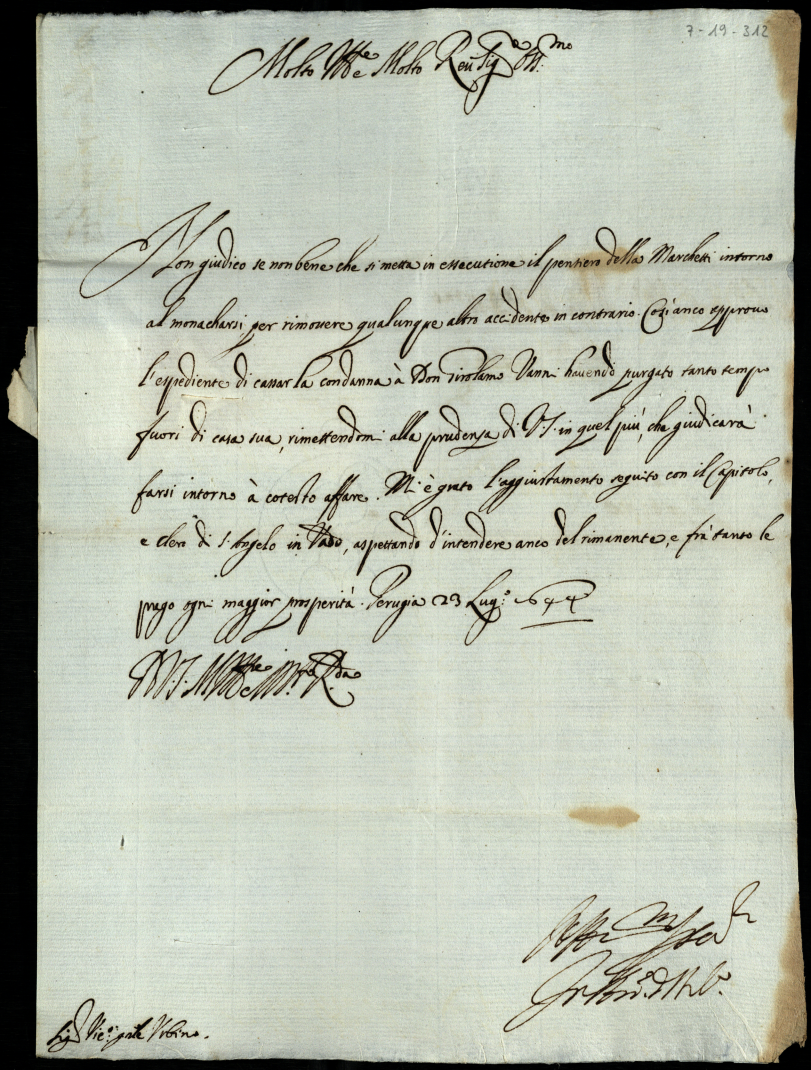 7-19-312
Molto Ill.re e Molto Reu. Sig.re
Non giudico se non bene che si metta in essecutione il pensiero della Marchetti intorno
al monacharsi per rimovere qualunque altro accidente in contrario. Così anco approuo
l'espediente di cassar la condanna à Don Girolamo Vanni hauendo purgato tanto tempo
fuori di casa sua, rimettendomi alla prudenza di V.S. in quel più, che giudicarà
farsi intorno à cotesto affare. Mi è grato l'aggiustamento seguito con il Capitolo,
e clero di S. Angelo in Vado, aspettando d'intendere anco del rimanente, e frà tanto le
prego ogni maggior prosperità. Perugia 23 Lug.o 1644
D.V.S. M. Ill.re e M.to R.da
Sig.r Vic.o g.nle Vrbino.